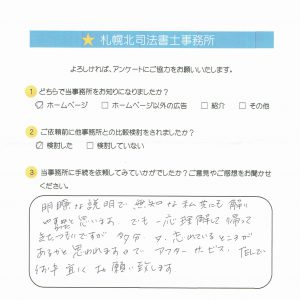 ★ 札幌北司法書士事務所
よろしければ、アンケートにご協力をお願いいたします。
1 どちらで当事務所をお知りになりましたか？
☑ ホームページ □ ホームページ以外の広告 □ 紹介 □ その他
2 ご依頼前に他事務所との比較検討をされましたか？
☑ 検討した □ 検討していない
3 当事務所に手続を依頼してみていかがでしたか？ご意見やご感想をお聞かせ
ください。
明瞭な説明で、無知な私共にも解り
思います。でも一応理解して帰って
きたつもりですが 多分 忘れているところが
あるかと思われますので アフターサービス
何卒宜しくお願い致します